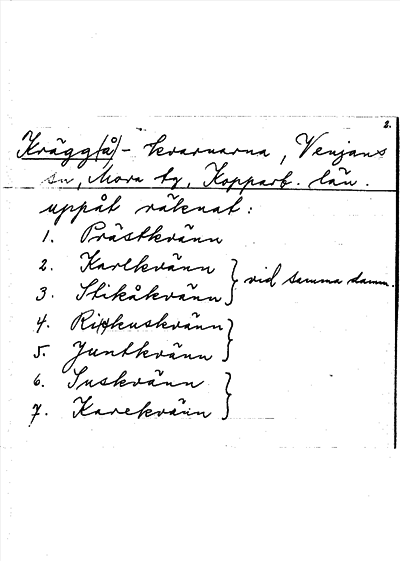 2.
Krägg(å)- kvarnarna, Venjans
sn, Mora tg, Kopparb. län.
uppåt räknat:
1. Prästkvänn
2. Karlkvänn
3. Stikåkvänn } vid samma damm.
4. kuskvänn
5. Juntkvänn }
6. Suskvänn
7. Karekvänn }